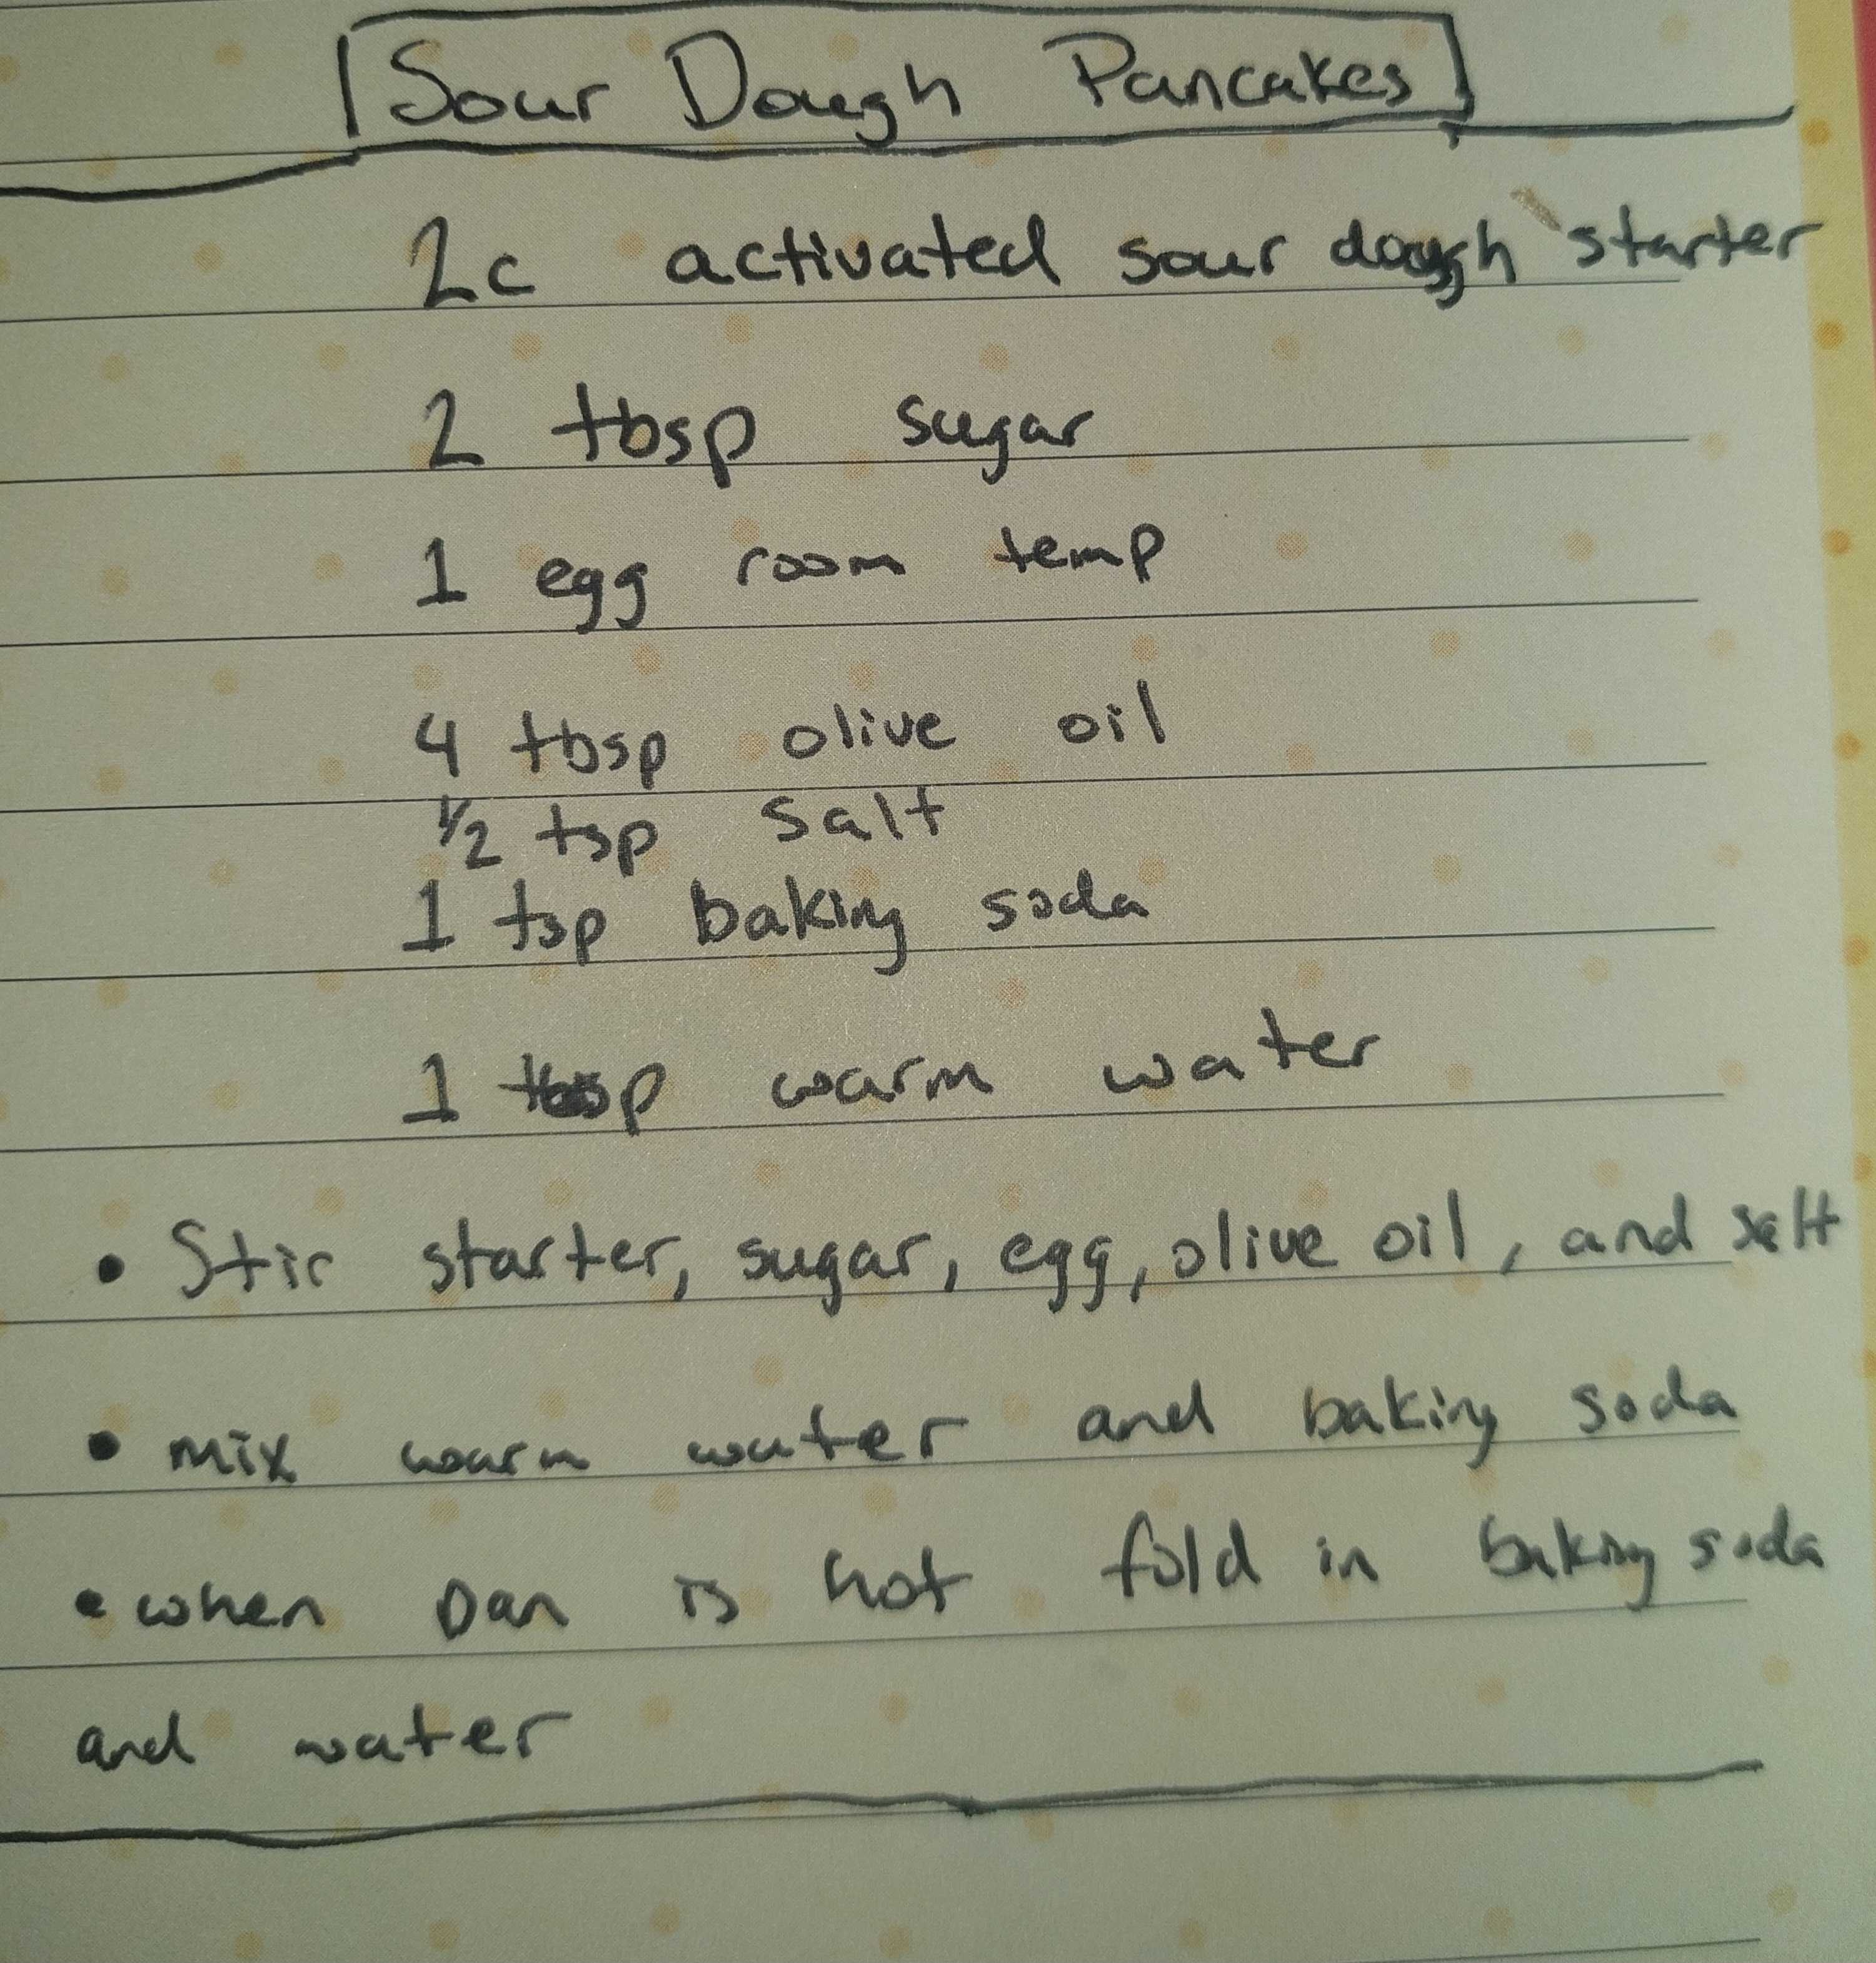 Sour Dough Pancakes
2c activated sour dough starter
2 tbsp sugar
1 egg room temp
4 tbsp olive oil
1/2 tsp salt
1 tsp baking soda
1 tbsp warm water
• Stir starter, sugar, egg, olive oil, and salt
• mix warm water and baking soda
• when pan is hot fold in baking soda
and water